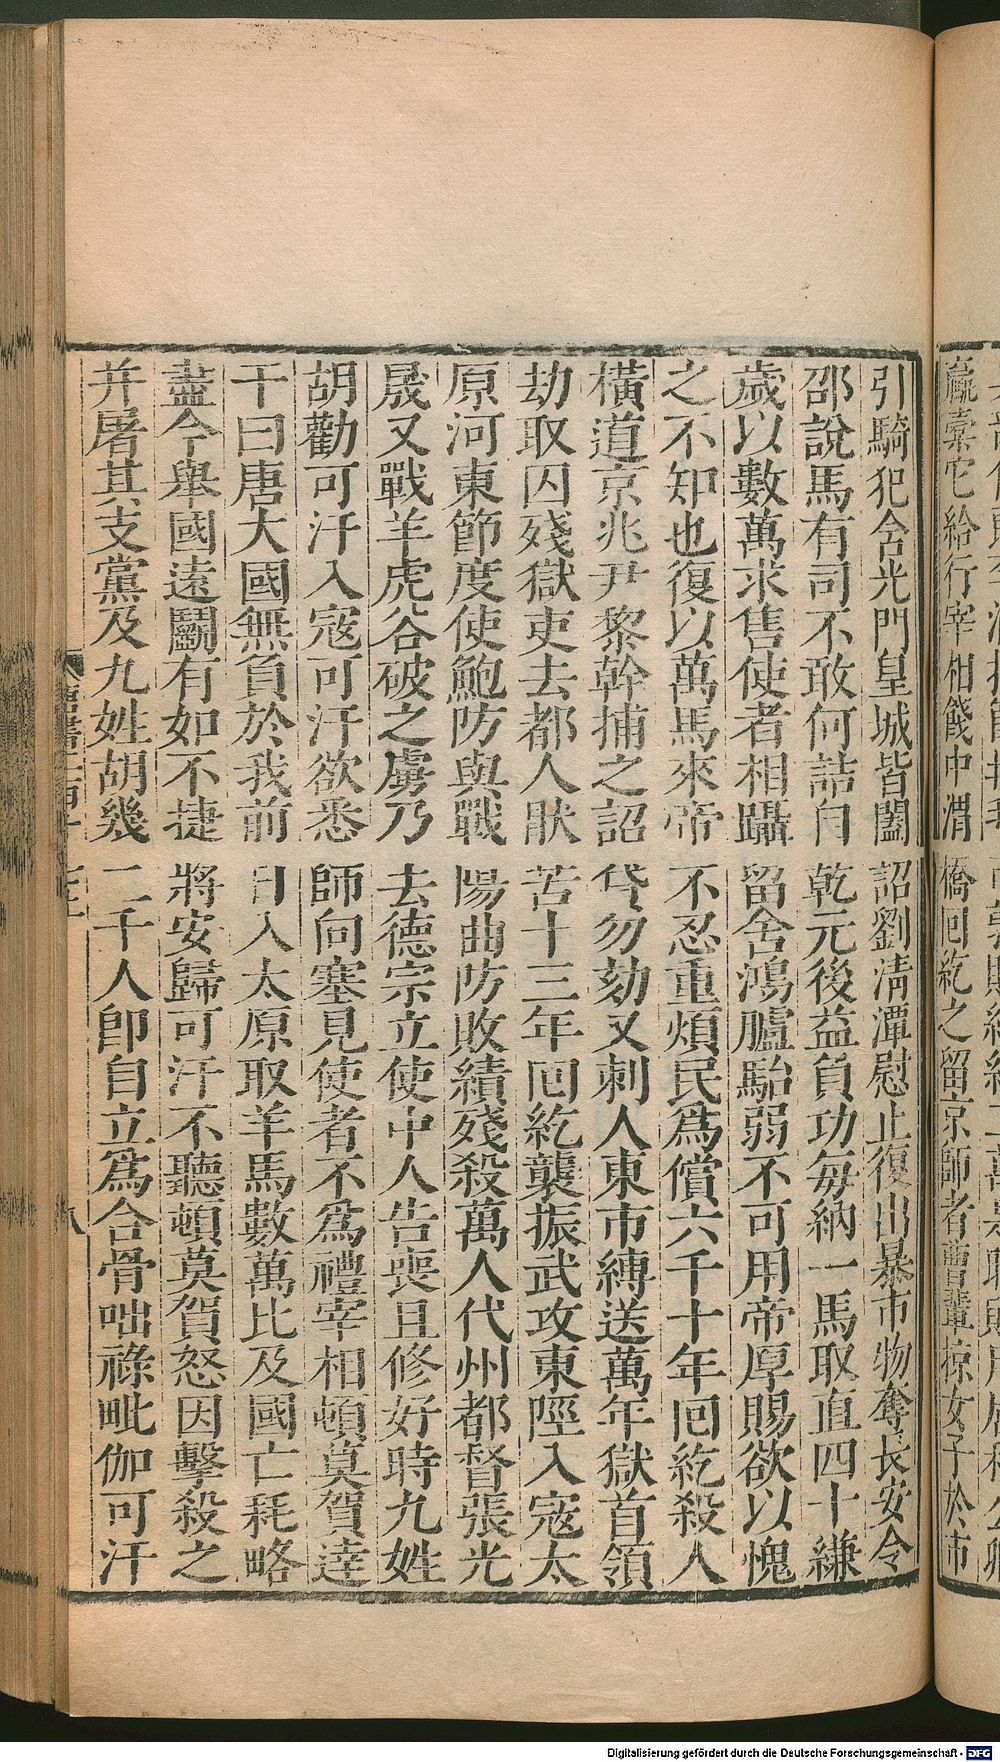 贏橐它給行宰相餞中渭橋回紇之留京師者曹輩掠女子於市
引騎犯含光門皇城皆闔詔劉淸潭慰止復出暴市物奪長安令
邵說馬有司不敢何詰自乾元後益負功每納一馬取直四十縑
歲以數萬求售使者相躡留舍鴻臚駘弱不可用帝厚賜欲以愧
之不知也復以萬馬來帝不忍重煩民爲償六千十年囘紇殺人
橫道京兆尹黎幹捕之詔貸勿劾又刺人東市縛送萬年獄首領
劫取囚殘獄吏去都人猒苦十三年囘紇襲振武攻東陘入寇太
原河東節度使鮑防與戰陽曲防敗績殘殺萬人代州都督張光
晟又戰羊虎谷破之虜乃去德宗立使中人告喪且修好時九姓
胡勸可汗入寇可汗欲悉師向塞見使者不爲禮宰相頓莫賀達
干曰唐大國無負於我前日入太原取羊馬數萬比及國亡耗略
盡今舉國遠鬬有如不捷將安歸可汗不聽頓莫賀怒因擊殺之
并屠其支黨及九姓胡幾二千人卽自立爲合骨咄祿毗伽可汗
八
Digitalisierung gefördert durch die Deutsche Forschungsgemeinschaft - DFG